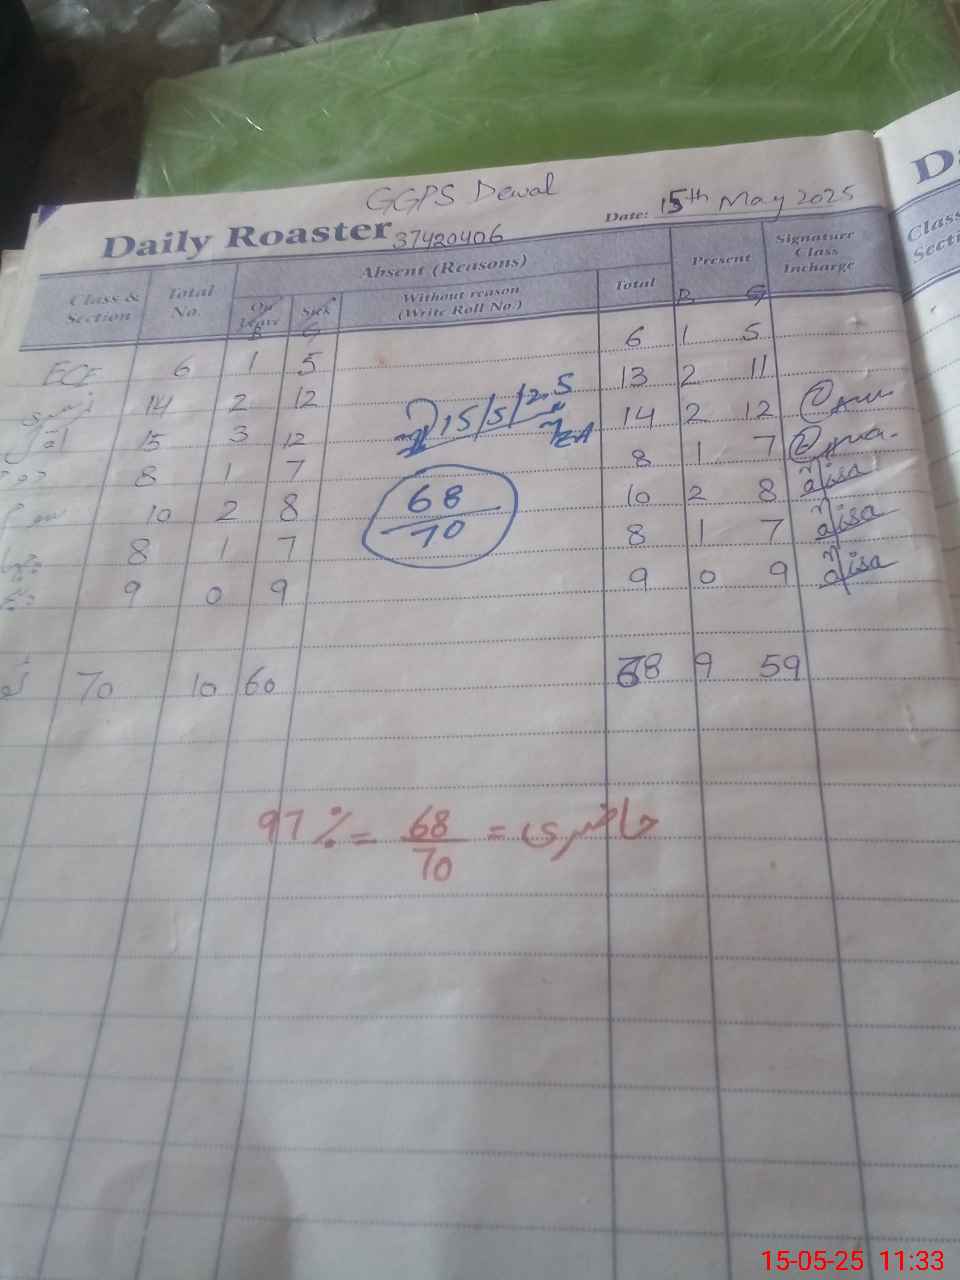 GGPS Dewal
Daily Roaster 37420406 Date: 15th May 2025
Class & Section Total No. Absent (Reasons) Present Signature Class Incharge
On Leave Sick Without reason (Write Roll No.) Total
B G B G
ECE 6 1 5 6 1 5
14 2 12 13 2 11
15 3 12 14 2 12
8 1 7 8 1 7
10 2 8 10 2 8 Aisa
8 1 7 8 1 7 Aisa
9 0 9 9 0 9 Aisa
15/5/25
68
70
70 10 60 68 9 59
97 % = 68/70 = حاضری
D
Class
Secti
15-05-25 11:33